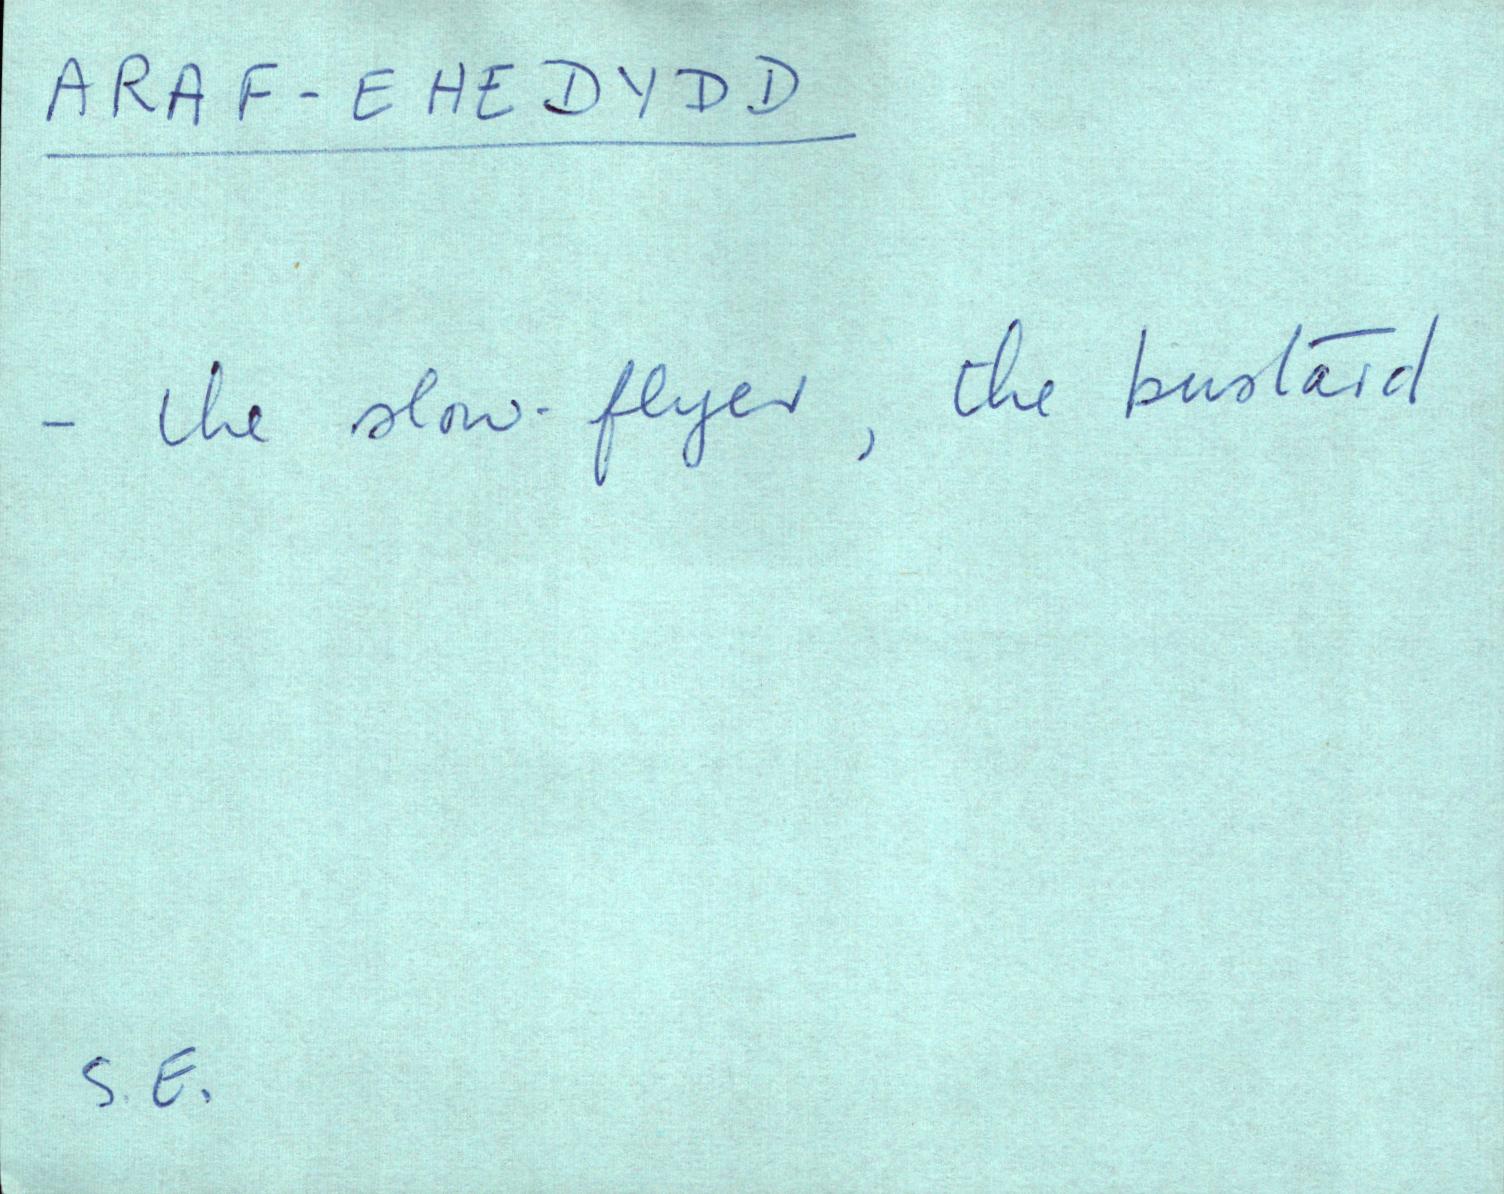 ARAF-EHEDYDD
- the slow-flyer, the bustard
S.E.